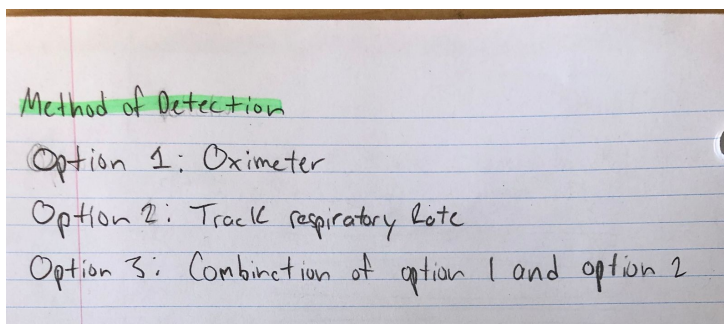 Method of Detection
Option 1: Oximeter
Option 2: Track respiratory Rate
Option 3: Combination of option 1 and option 2